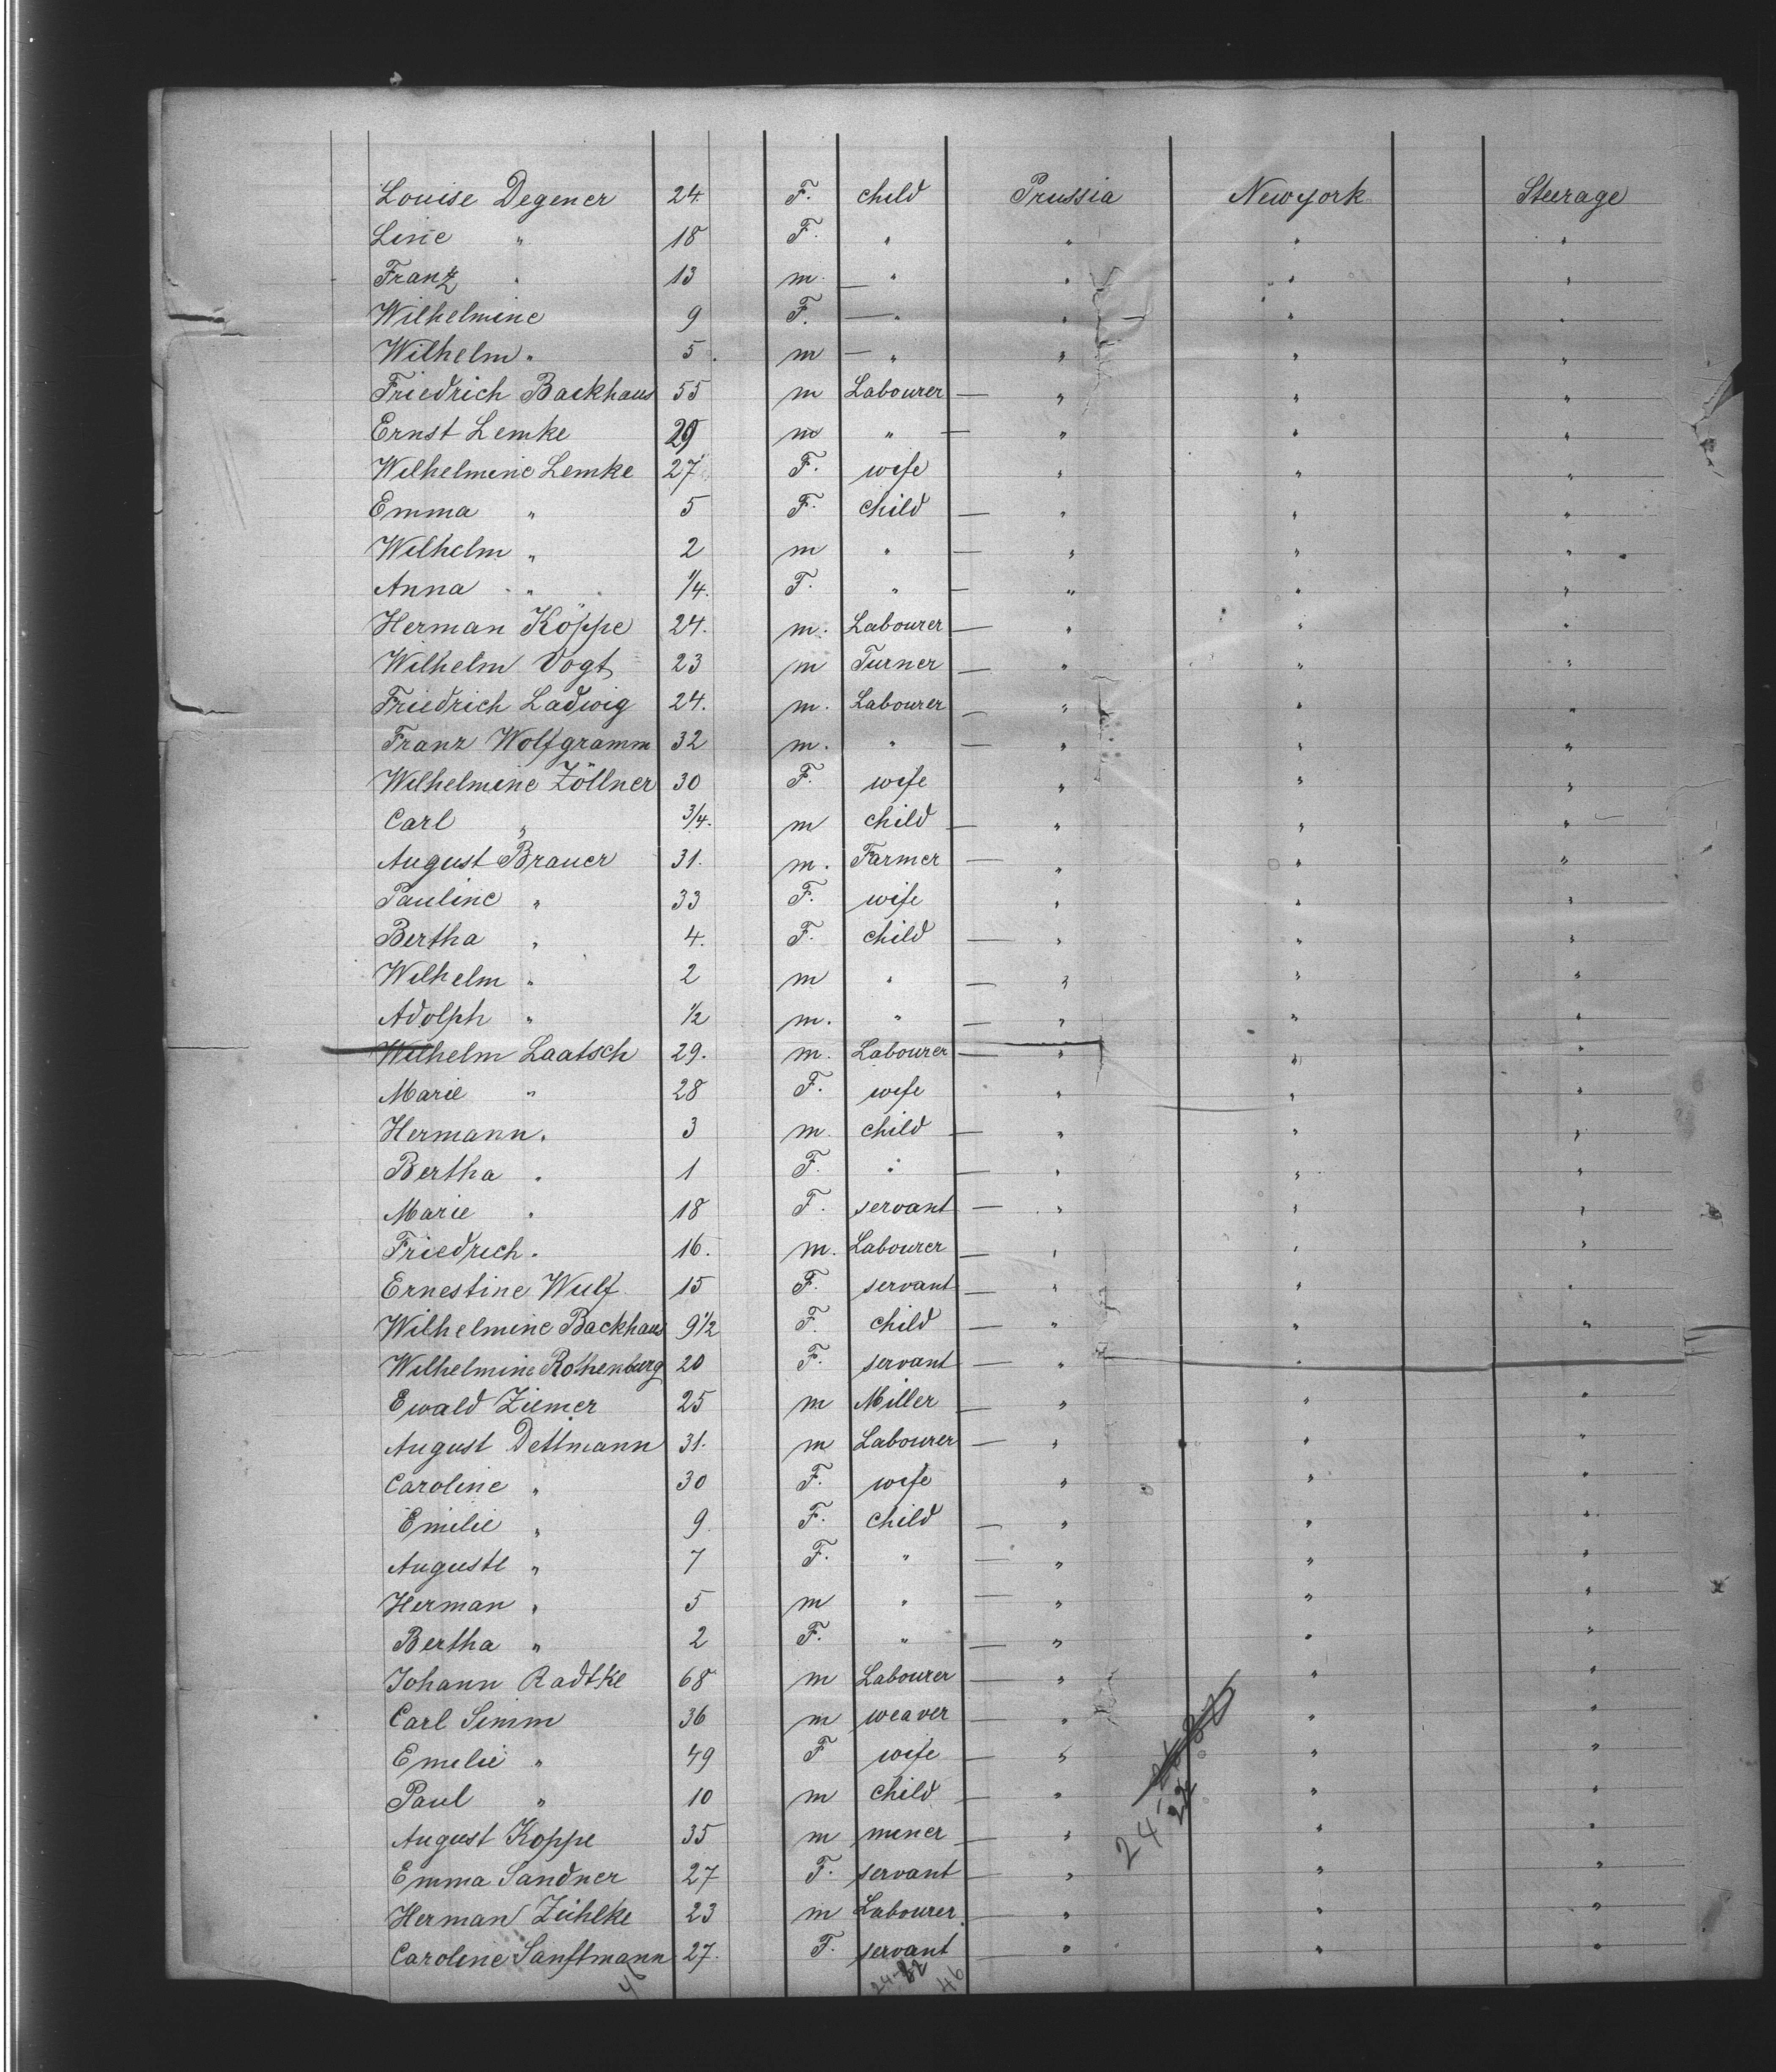 Louise Degener 24. F. child Prussia Newyork Steerage
Line " 18 F. " " " "
Franz " 13 m. — " " " "
Wilhelmine 9 F. — " " " "
Wilhelm " 5. m — " " " "
Friedrich Backhaus 55 m Labourer — " " "
Ernst Lemke 29 m " — " " "
Wilhelmine Lemke 27 F. wife " " "
Emma " 5 F. child — " " "
Wilhelm " 2 m " — " " "
Anna " 1/4. F. " — " " "
Herman Köppe 24. m. Labourer — " " "
Wilhelm Vogt 23 m Turner — " " "
Friedrich Ladwig 24. m. Labourer — " " "
Franz Wolfgramm 32 m. " — " " "
Wilhelmine Zöllner 30 F. wife " " "
Carl " 3/4. m child — " " "
August Brauer 31. m. Farmer — " " "
Pauline " 33 F. wife " " "
Bertha " 4. F. child — " " "
Wilhelm " 2 m " — " " "
Adolph " 1/2 m. " — " " "
Wilhelm Laatsch 29. m. Labourer — " " "
Marie " 28 F. wife " " "
Hermann " 3 m. child — " " "
Bertha " 1 F. " — " " "
Marie " 18 F. servant — " " "
Friedrich " 16. m. Labourer — " " "
Ernestine Wulf 15 F. servant — " " "
Wilhelmine Backhaus 9 1/2 F. child — " " "
Wilhelmine Rothenburg 20 F. servant — " " "
Ewald Ziemer 25 m Miller — " " "
August Dettmann 31. m Labourer — " " "
Caroline " 30 F. wife " " "
Emilie " 9. F. child — " " "
Auguste " 7 F. " — " " "
Herman " 5 m " — " " "
Bertha " 2 F. " — " " "
Johann Radtke 68 m Labourer — " " "
Carl Simm 36 m weaver — " " "
Emilie " 49 F wife — " " "
Paul " 10 m child — " " "
August Koppe 35 m miner — " " "
Emma Sandner 27 F. servant — " " "
Herman Zühlke 23 m Labourer. — " " "
Caroline Sanftmann 27. F. servant — " " "
24 - 22
24-22 46